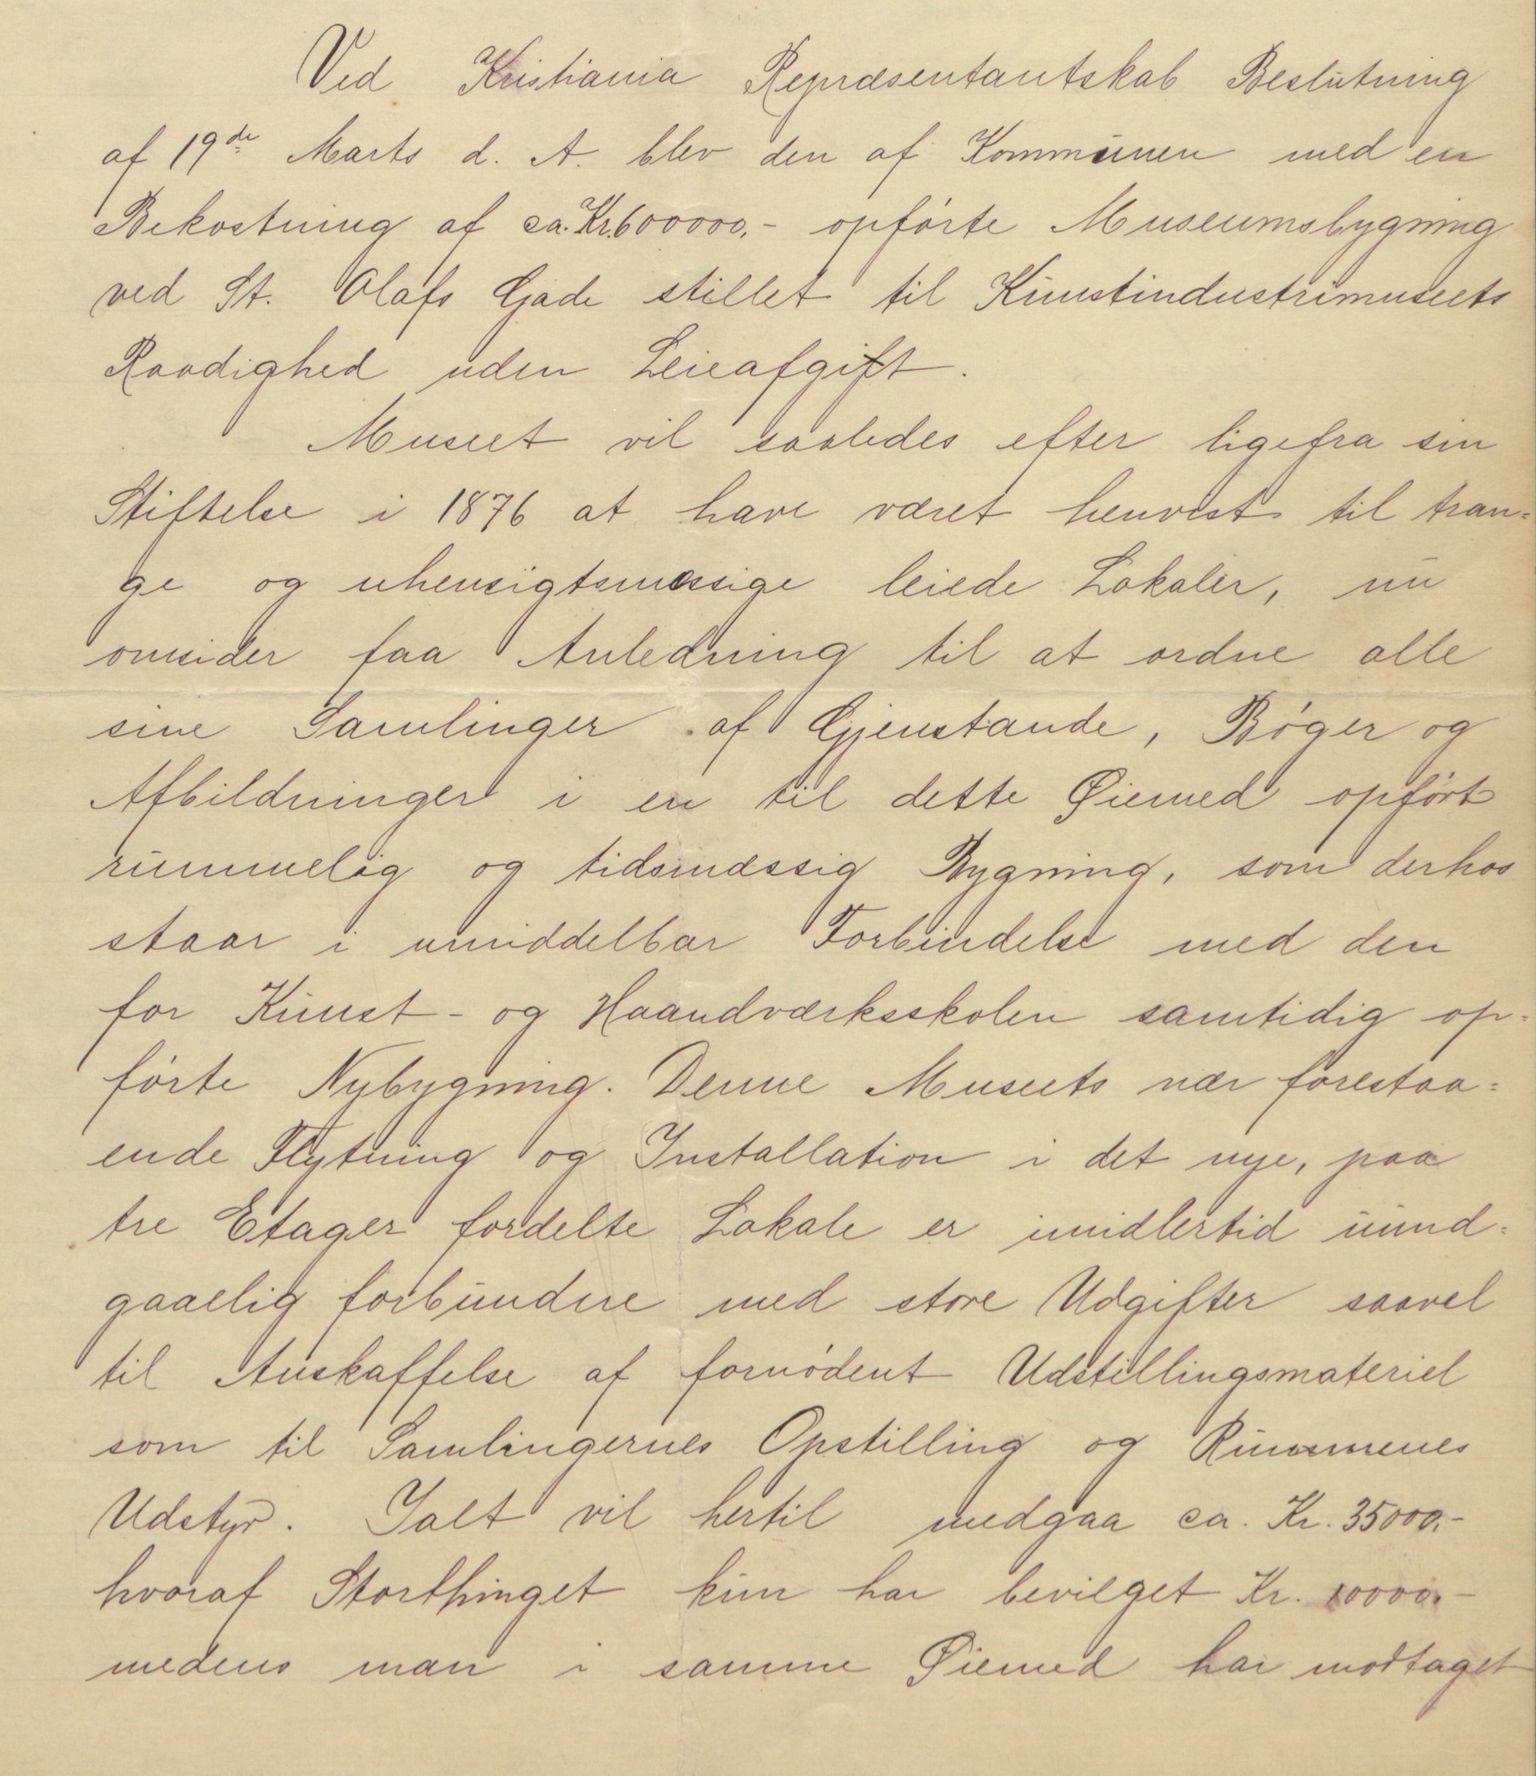 Ved Kristiania Repræsentantskab Beslutning
af 19de Marts d. A. blev den af Kommunen med en
Bekostning af ca. Kr. 600000.- opførte Museumsbygning
ved St. Olafs Gade stillet til Kunstindustrimuseets
Raadighed uden Leieafgift.
Museet vil saaledes efter ligefra sin
Stiftelse i 1876 at have været henvist til tran=
ge og uhensigtsmæssige leiede Lokaler, nu
omsider faa Anledning til at ordne alle
sine Samlinger af Gjenstande, Bøger og
Afbildninger i en til dette Øiemed opført
rummelig og tidsmæssig Bygning, som derhos
staar i umiddelbar Forbindelse med den
for Kunst- og Haandværksskolen samtidig op=
førte Nybygning. Denne Museets nær forestaa=
ende Flytning og Installation i det nye, paa
tre Etager fordelte Lokale er imidlertid uund=
gaaelig forbundne med store Udgifter saavel
til Anskaffelse af fornødent Udstillingsmateriel
som til Samlingernes Opstilling og Rummenes
Udstyr. Ialt vil hertil medgaa ca. Kr. 35000.-
hvoraf Storthinget kun har bevilget Kr. 10000.-
medens man i samme Øiemed har modtaget